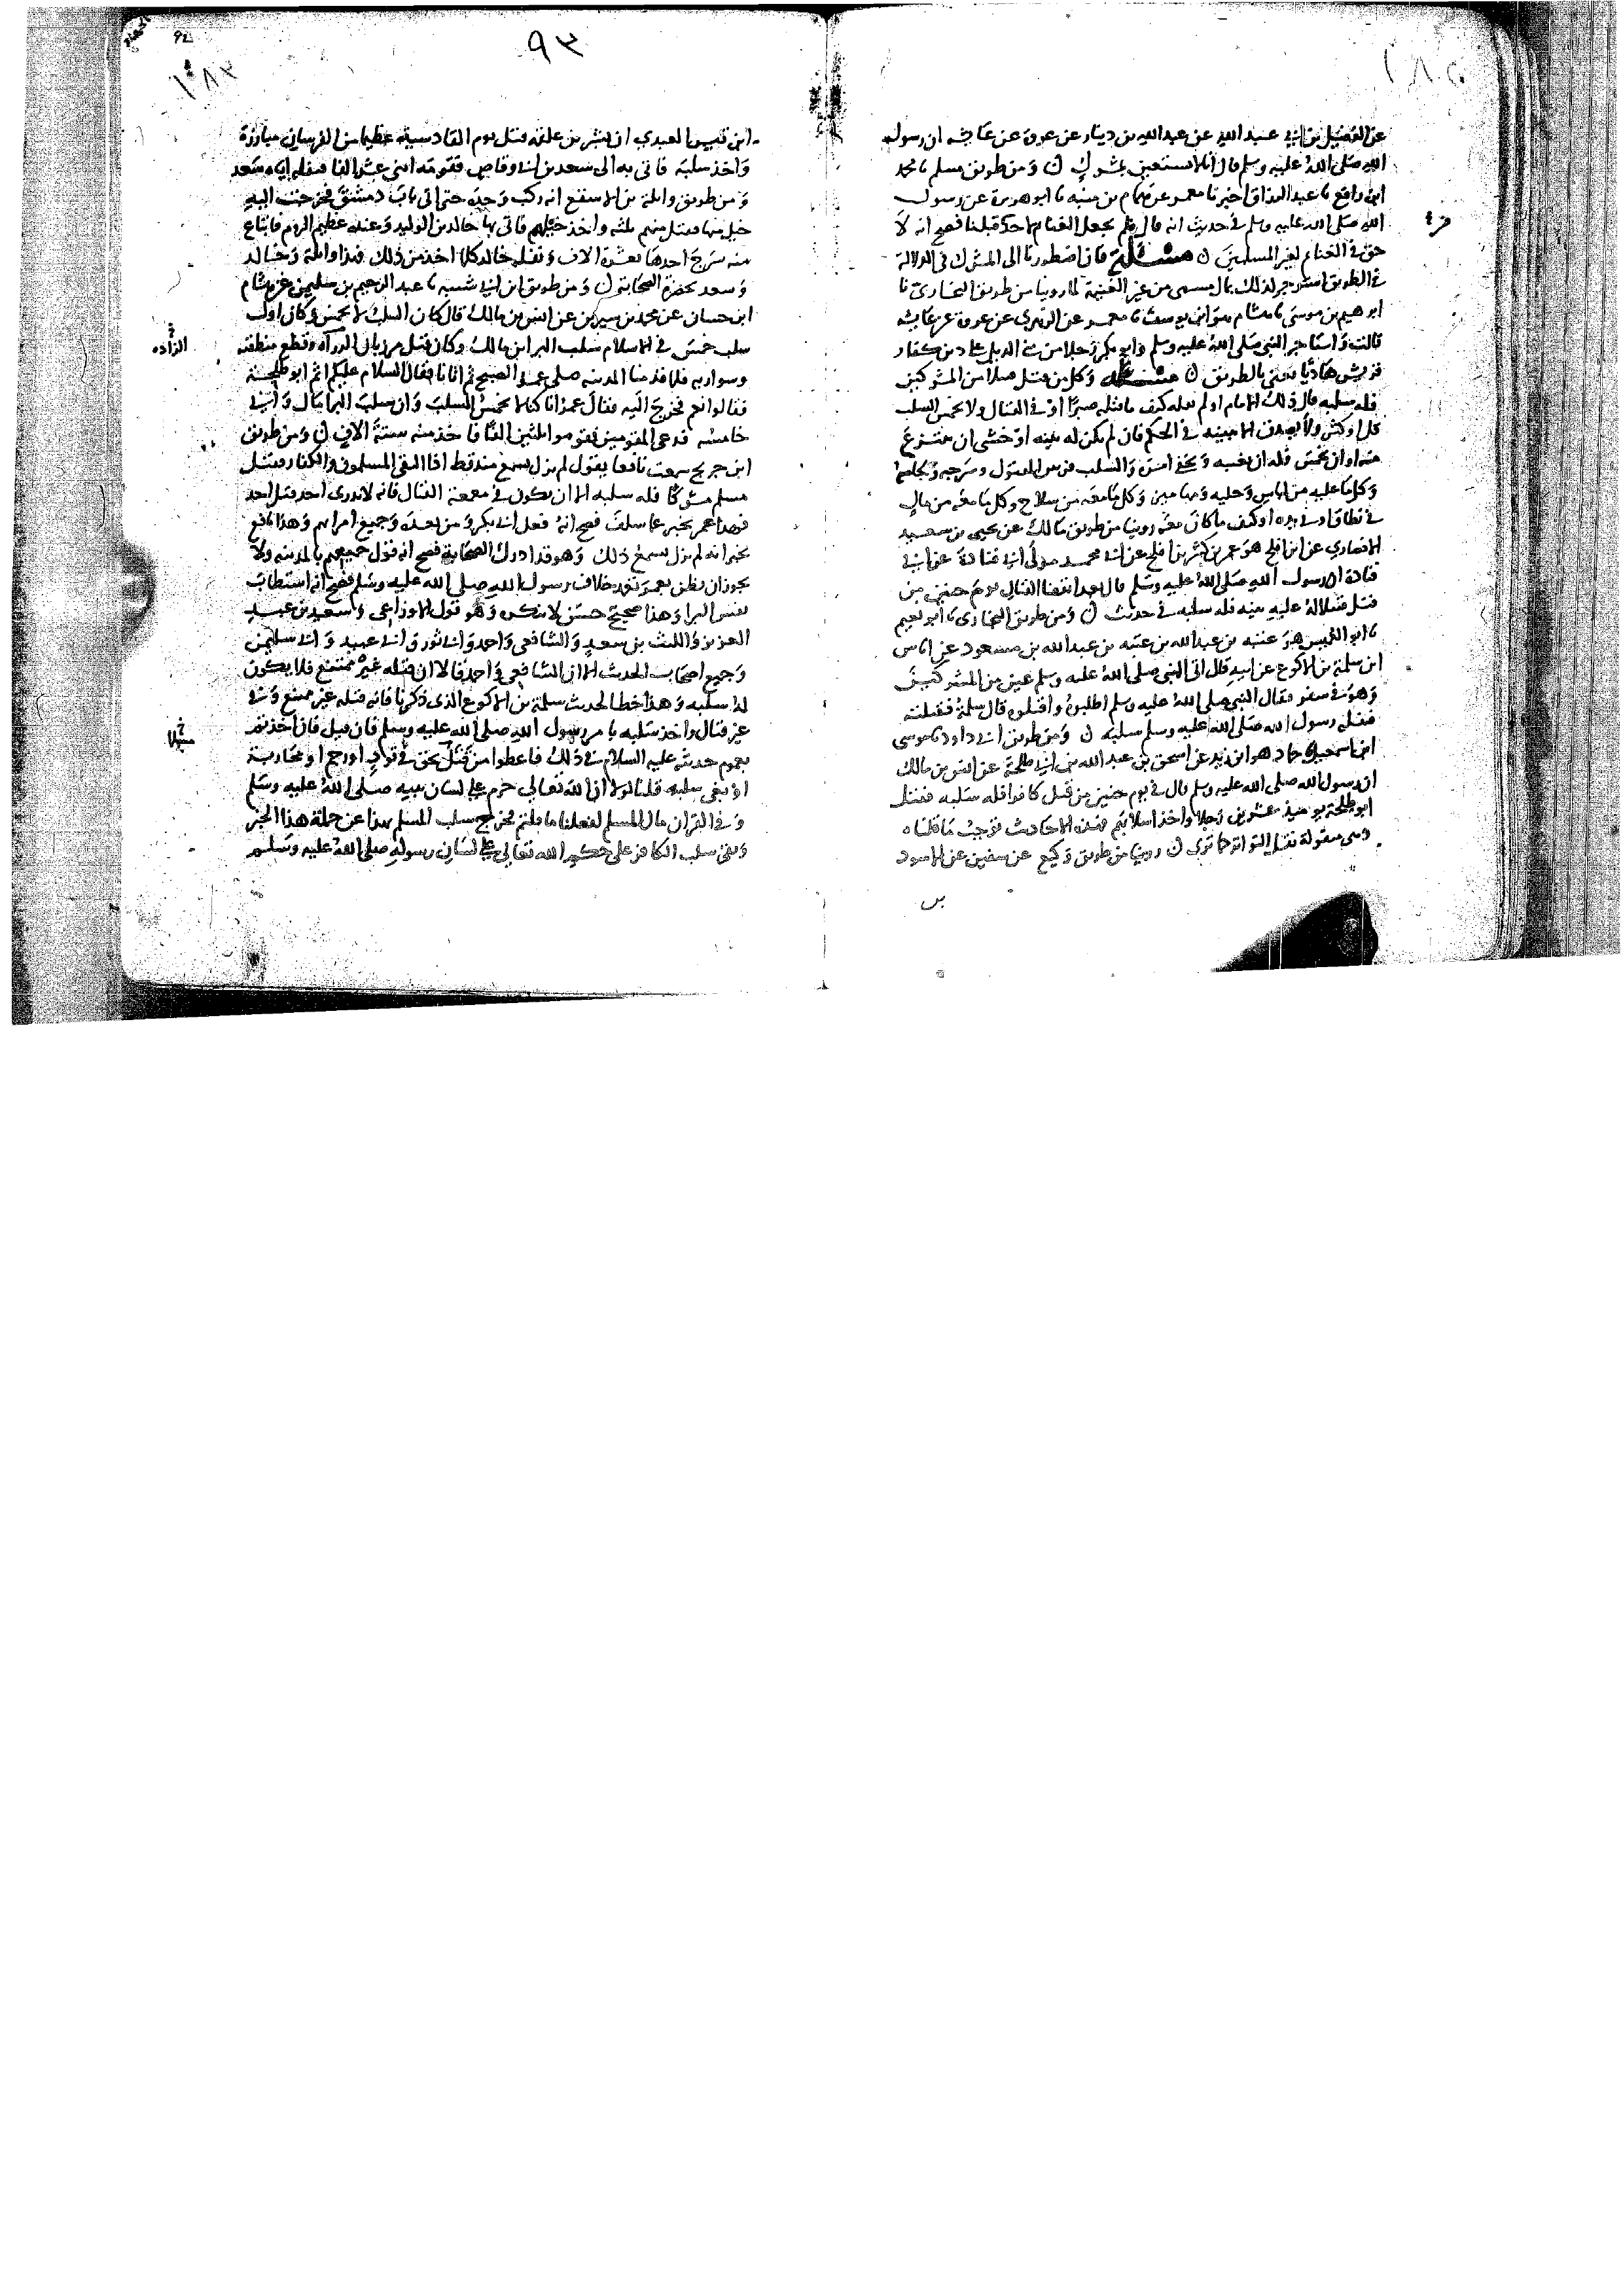 عن الفضيل بن ابي عبد الله عن عبد الله بن دينار عن عروة عن عائشه ان رسول
الله صلى الله عليه وسلم قال انا لا نستعين بمشرك ن ومن طريق مسلم نا محمد
ابن رافع نا عبد الرزاق اخبرنا معمر عن همام بن منبه نا ابو هريرة عن رسول
الله صلى الله عليه وسلم في حديث انه قال فلم يحل الغنائم لاحد قبلنا فصح انه لا
حق في الغنائم لغير المسلمين ن مسئلة فان اضطررنا الى المشرك في الدلالة
في الطريق استؤجر لذلك بمال مسمى من غير الغنيمة لما روينا من طريق البخاري نا
ابرهيم بن موسى نا هشام هو ابن يوسف نا معمر عن الزهري عن عروة عن عائشه
قالت واستاجر النبي صلى الله عليه وسلم وابو بكر رجلا من بني الديل على دين كفار
قريش هاديا يعني بالطريق ن مسئلة وكل من قتل قتيلا من المشركين
فله سلبه قال ذلك الامام او لم يقله كيف ما قتله صبرا او في القتال ولا يخمس السلب
قل او كثر ولا يصدق الا ببينه في الحكم فان لم يكن له بينه او خشي ان ينتزع
منه او ان يخمس فله ان يغيبه ويخفي امره والسلب فرس المقتول وسرجه ولجامه
وكل ما عليه من لباس وحليه ومهاميز وكل ما معه من سلاح وكل ما معه من مال
في نطاقه او في يده او كيف ما كان معه روينا من طريق مالك عن يحيى بن سعيد
الانصاري عن ابن افلح هو عمر بن كثير بن افلح عن ابي محمد مولى ابي قتادة عن ابي
قتادة ان رسول الله صلى الله عليه وسلم قال بعد انقضا القتال يوم حنين من
قتل قتيلا له عليه بينه فله سلبه في حديث ن ومن طريق البخاري نا ابو نعيم
نا ابو العميس هو عتبه بن عبد الله بن عتبه بن عبد الله بن مسعود عن اياس
ابن سلمة بن الاكوع عن ابيه قال اتى النبي صلى الله عليه وسلم عين من المشركين
وهو في سفر فقال النبي صلى الله عليه وسلم اطلبوه واقتلوه قال سلمة فقتلته
فنفله رسول الله صلى الله عليه وسلم سلبه ن ومن طريق ابي داود نا موسى
ابن اسمعيل نا حماد هو ابن زيد عن اسحق بن عبد الله بن ابي طلحة عن انس بن مالك
ان رسول الله صلى الله عليه وسلم قال في يوم حنين من قتل كافرا فله سلبه فقتل
ابو طلحة يومئذ عشرين رجلا واخذ اسلابهم فهذه الاحاديث توجب ما قلناه
وهي منقولة نقل التواتر كما ترى ن روينا من طريق وكيع عن سفين عن الاسود
بن
٩٣
ابن قيس العبدي ان بشر بن علقمه قتل يوم القادسيه عظيما من الفرسان مبارزة
واخذ سلبه فاتى به الى سعد بن ابي وقاص فقومه اثني عشر الفا فنفله اياه سعد
ومن طريق واثلة بن الاسقع انه ركب وحده حتى اتى باب دمشق فخرجت اليه
خيل منها فقتل منهم ثلثه واخذ خيلهم فاتى بها خالد بن الوليد وعنده عظيم الروم فابتاع
منه سرج احدها بعشرة الاف ونفله خالد كلما اخذ من ذلك فهذا واثلة وخالد
وسعد بحضرة الصحابة ن ومن طريق ابن ابي شيبه نا عبد الرحيم بن سليمن عن هشام
ابن حسان عن محمد بن سيرين عن انس بن مالك قال كان السلب لا يخمس وكان اول
سلب خمس في الاسلام سلب البرا بن مالك وكان قتل مرزبان الزرآه وقطع منطقته
وسواريه فلما قدمنا المدينه صلى عمر الصبح ثم اتانا فقال السلام عليكم اثم ابو طلحة
فقالوا نعم فخرج اليه فقال عمر انا كنا لا نخمس السلب وان سلب البرا مال واني
خامسه فدعى المقومين فقوموا ثلثين الفا فاخذ منه ستة الاف ن ومن طريق
ابن جريج سمعت نافعا يقول لم نزل نسمع منذ قط اذا التقى المسلمون والكفار فقتل
مسلم مشركا فله سلبه الا ان يكون في معمعة القتال فانه لا يدرى احد قتل احد
فهذا عمر يخبر عما سلف فصح انه فعل ابي بكر ومن بعده وجميع امرائهم وهذا نافع
يخبر انه لم يزل يسمع ذلك وهو قد ادرك الصحابة فصح انه قول جميعهم بالمدينه ولا
يجوز ان يظن بعمر تعمد خلاف رسول الله صلى الله عليه وسلم فصح انه استطاب
نفس البرا وهذا صحيح حسن لا ننكره وهو قول الاوزاعي وسعيد بن عبد
العزيز والليث بن سعد والشافعي واحمد وابي ثور وابي عبيد وابي سليمن
وجميع اصحاب الحديث الا ان الشافعي واحمد قالا ان قتله غير ممتنع فلا يكون
له سلبه وهذا خطا لحديث سلمة بن الاكوع الذي ذكرنا فانه قتله غير ممتنع وفي
غير قتال واخذ سلبه بامر رسول الله صلى الله عليه وسلم فان قيل فان اخذتم
بعموم حديثه عليه السلام في ذلك فاعطوا من قتل بحق في قود او رجم او محاربة
او بغي سلبه قلنا لولا ان الله تعالى حرم على لسان نبيه صلى الله عليه وسلم
وفي القران مال المسلم لفعلنا ما قلتم فخرج سلب المسلم بهذا عن جملة هذا الخبر
وبقي سلب الكافر على حكم الله تعالى على لسان رسوله صلى الله عليه وسلم
الزاده